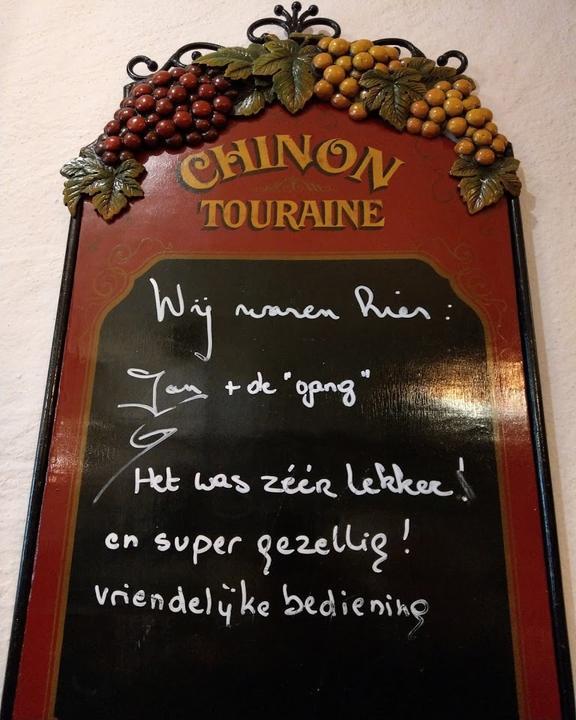 CHINON
TOURAINE
Wij waren hier:
Jan + de "gang"
Het was zéér lekker!
en super gezellig!
vriendelijke bediening